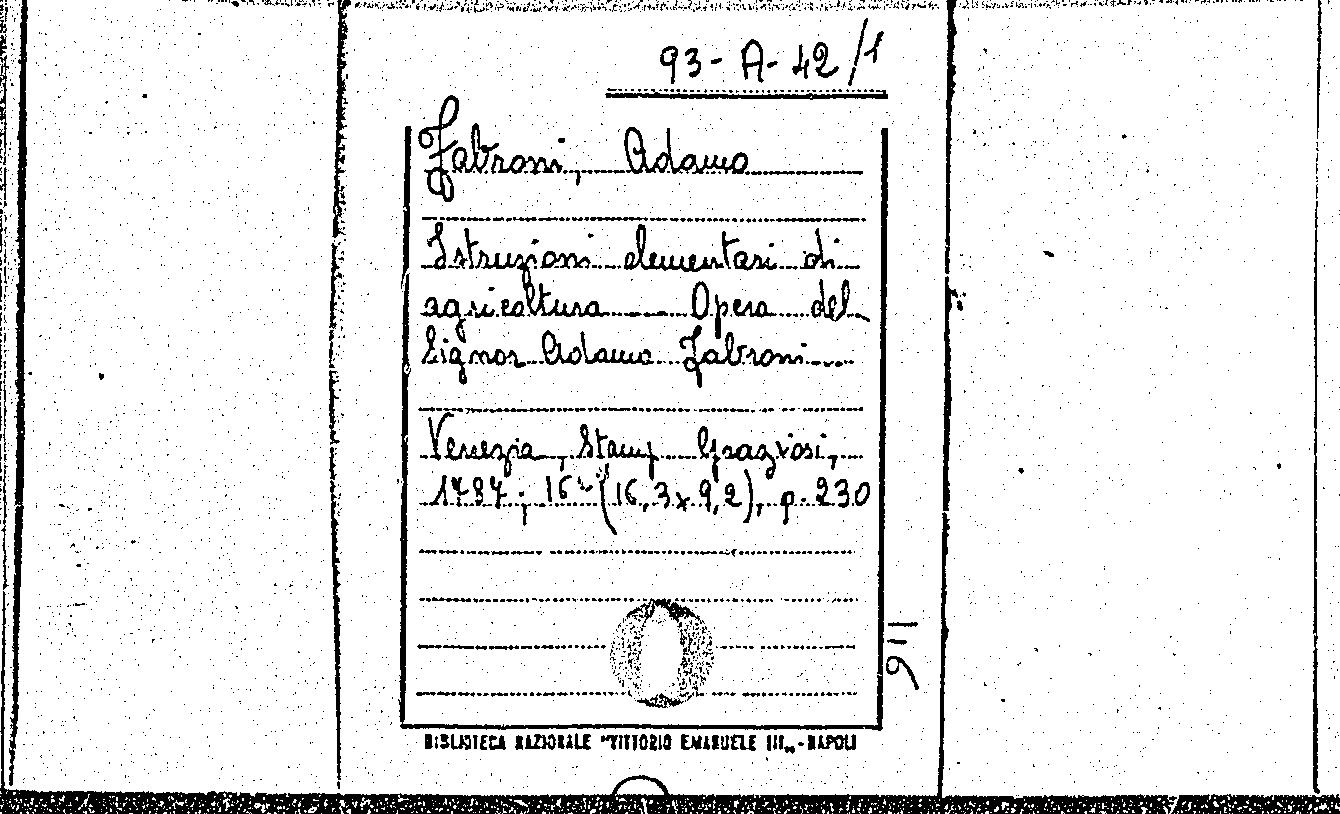 93-A-42/1
Fabroni, Adamo
Istruzioni elementari di
agricoltura Opera del
Signor Adamo Fabroni
Venezia, Stamp Graziosi,
1787; 16° (16,3x9,2), p. 230
BIBLIOTECA NAZIONALE "VITTORIO EMANUELE III„-NAPOLI